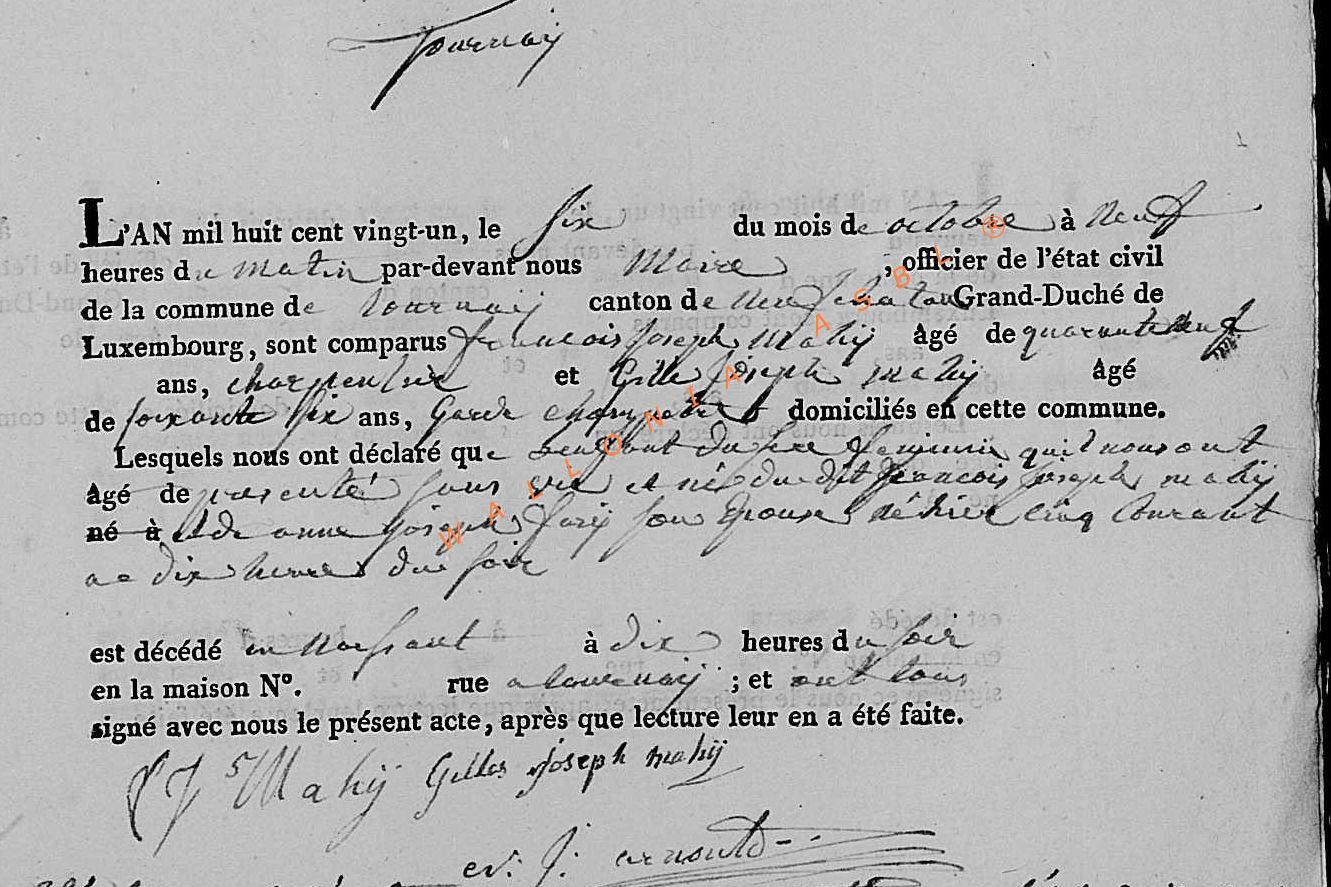 Tournay
L'AN mil huit cent vingt-un, le six du mois de octobre à neuf
heures du matin par-devant nous Maire , officier de l'état civil
de la commune de tournay canton de neufchatau Grand-Duché de
Luxembourg, sont comparus francois Joseph Mahÿ âgé de quarante neuf
ans, charpentier et Gille Joseph mahij âgé
de soixante six ans, Garde champetre domiciliés en cette commune.
Lesquels nous ont déclaré que enfant du sexe feminin qu'il nous ont
âgé de presenté sans vie et né du dit francois Joseph mahij
né à et de anne son Epouse hier cinq Courant
a dix heures du soir
est décédé en naissant à dix heures du soir
en la maison N°. rue a tournaij ; et ont tous
signé avec nous le présent acte, après que lecture leur en a été faite.
f J Mahÿ Gilles Joseph mahÿ
J. arnould
WALLONIA ASBL ®